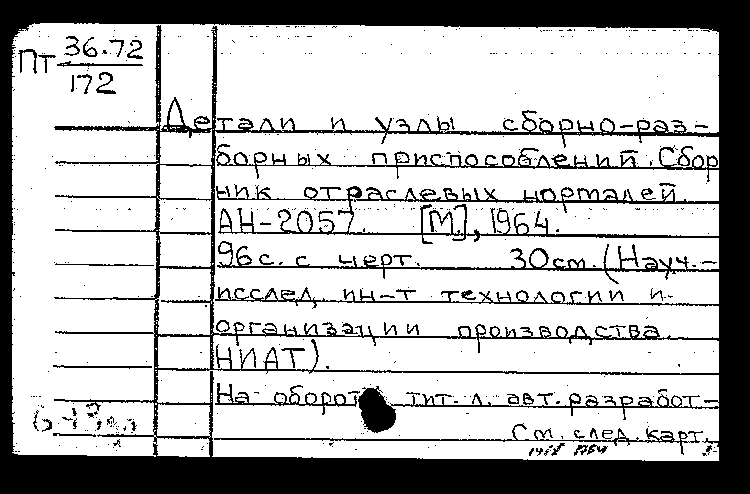 Пт 36.72
172
Детали и узлы сборно-раз-
борных приспособлений. Сбор
ник отраслевых нормалей.
АН-2057. [М.], 1964.
96 с. с черт. 30 см. (Науч.-
исслед. ин-т технологии и
организации производства
НИАТ).
На обороте тит. л. авт. разработ-
См. след. карт.